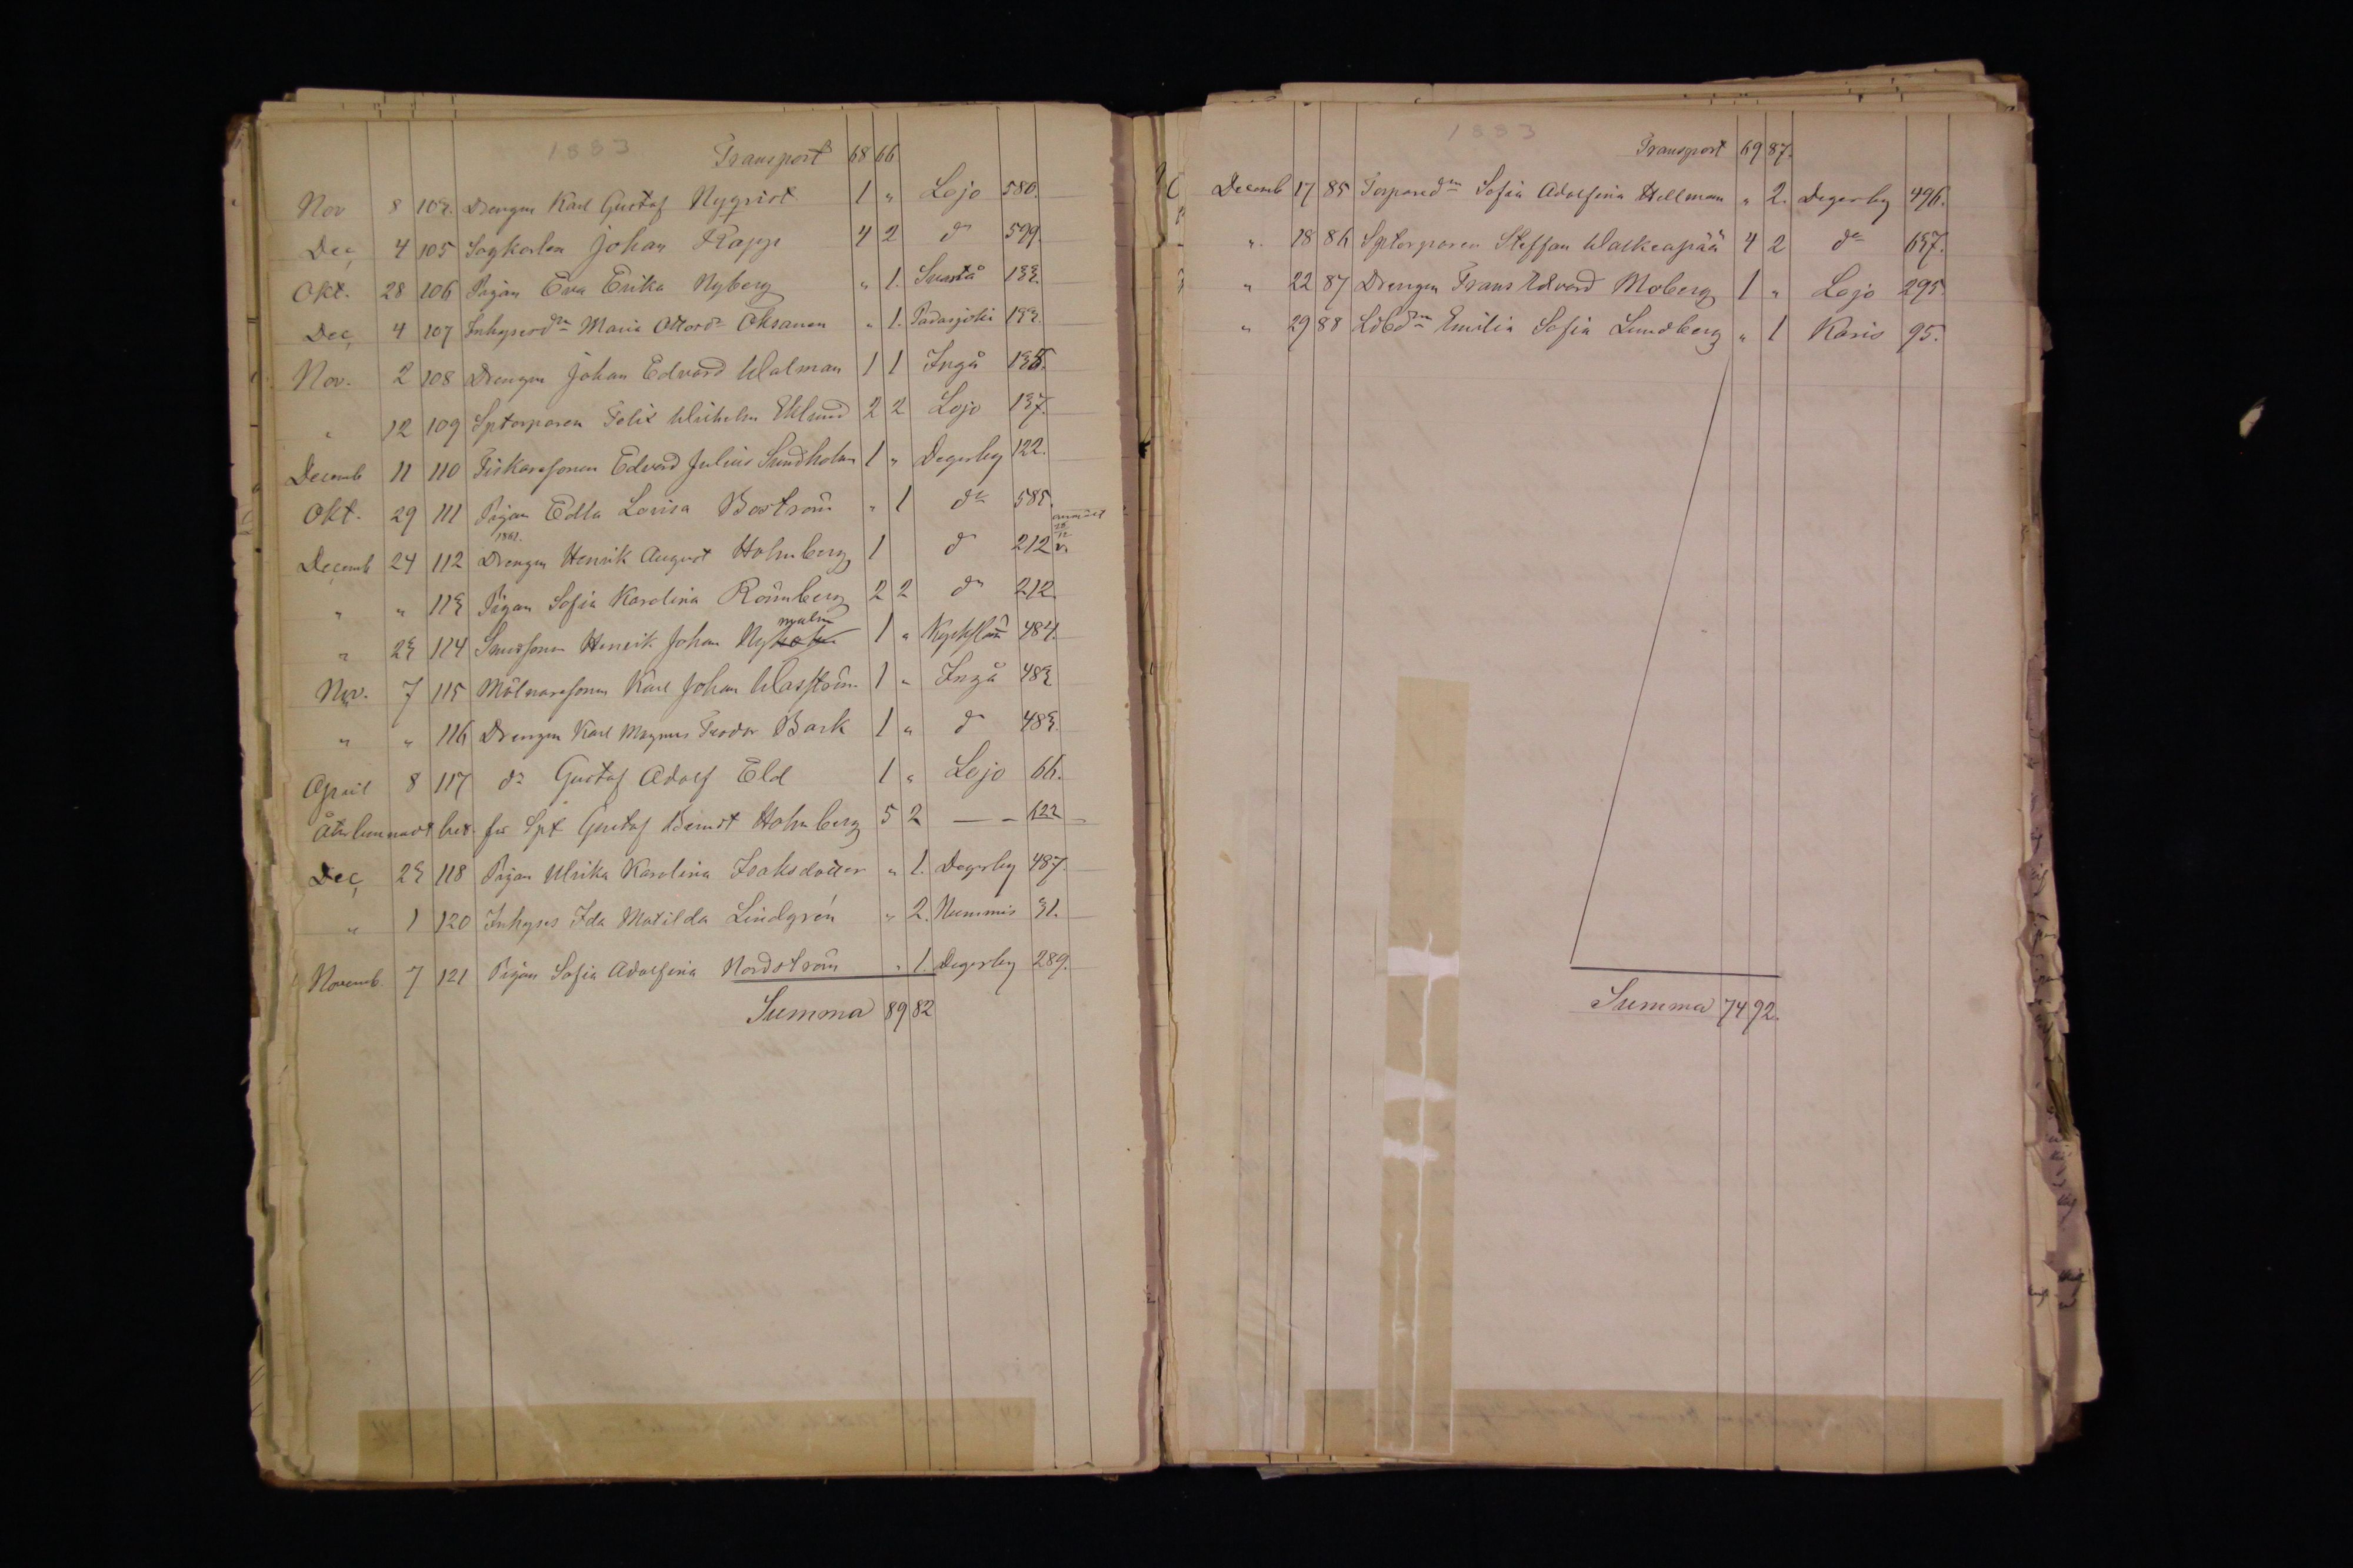 1883
Transport 68 66
Nov 8 103. Drengen Karl Gustaf Nyqvist 1 " Lojo 580.
Dec, 4 105 Sagkarlen Johan Kapp 4 2 do 599.
Okt. 28 106 Pigan Eva Erika Nyberg " 1. Svartå 133.
Dec, 4 107 Inhyserdrn Maria Oksanen " 1. Padasjoki 133.
Nov. 2 108 Drengen Johan Edvard Walman 1 1 Ingå 135.
" 12 109 Sptorparen Felix Wilhelm Eklund 2 2 Lojo 137.
Decemb 11 110 Fiskaresonen Edvard Julius Sundholm 1 " Degerby 122.
Okt. 29 111 Pigan Edla Lovisa Boström " 1 do 585.
Decemb 24 112 Drengen Henrik August Holmberg 1 do 212
" " 113 Pigan Sofia Karolina Rönnberg 2 2 do 212.
" 23 114 Henrik Johan Nymalm 1 " Kyrkslätt 484.
Nov. 7 115 Mölnaresonen Karl Johan Wasström 1 " Ingå 483
" " 116 Drengen Karl Magnus Teodor Bark 1 " do 483.
April 8 117 do Gustaf Adolf Eld 1 " Lojo 66.
Återlemnadt bet. för Spt Gustaf Berndt Holmberg 5 2 — – 622 –
Dec, 23 118 Pigan Ulrika Karolina Isaksdotter " 1. Degerby 487.
" 1 120 Inhyses Ida Matilda Lindgrén " 2. Nummis 31.
Novemb 7 121 Pigan Sofia Adolfina Nordström " 1. Degerby 289.
Summa 89 82
1883
Transport 69 87.
Decemb 17 85 Torparedrn Sofia Adolfina Hellman " 2. Degerby 496.
" 18 86 Sptorparen Steffan Walkeapää 4 2 do 637.
" 22 87 Drengen Frans Edvard Moberg 1 " Lojo 295.
" 29 88 Emilia Sofia Lundberg " 1 Karis 95.
Summa 74 92.